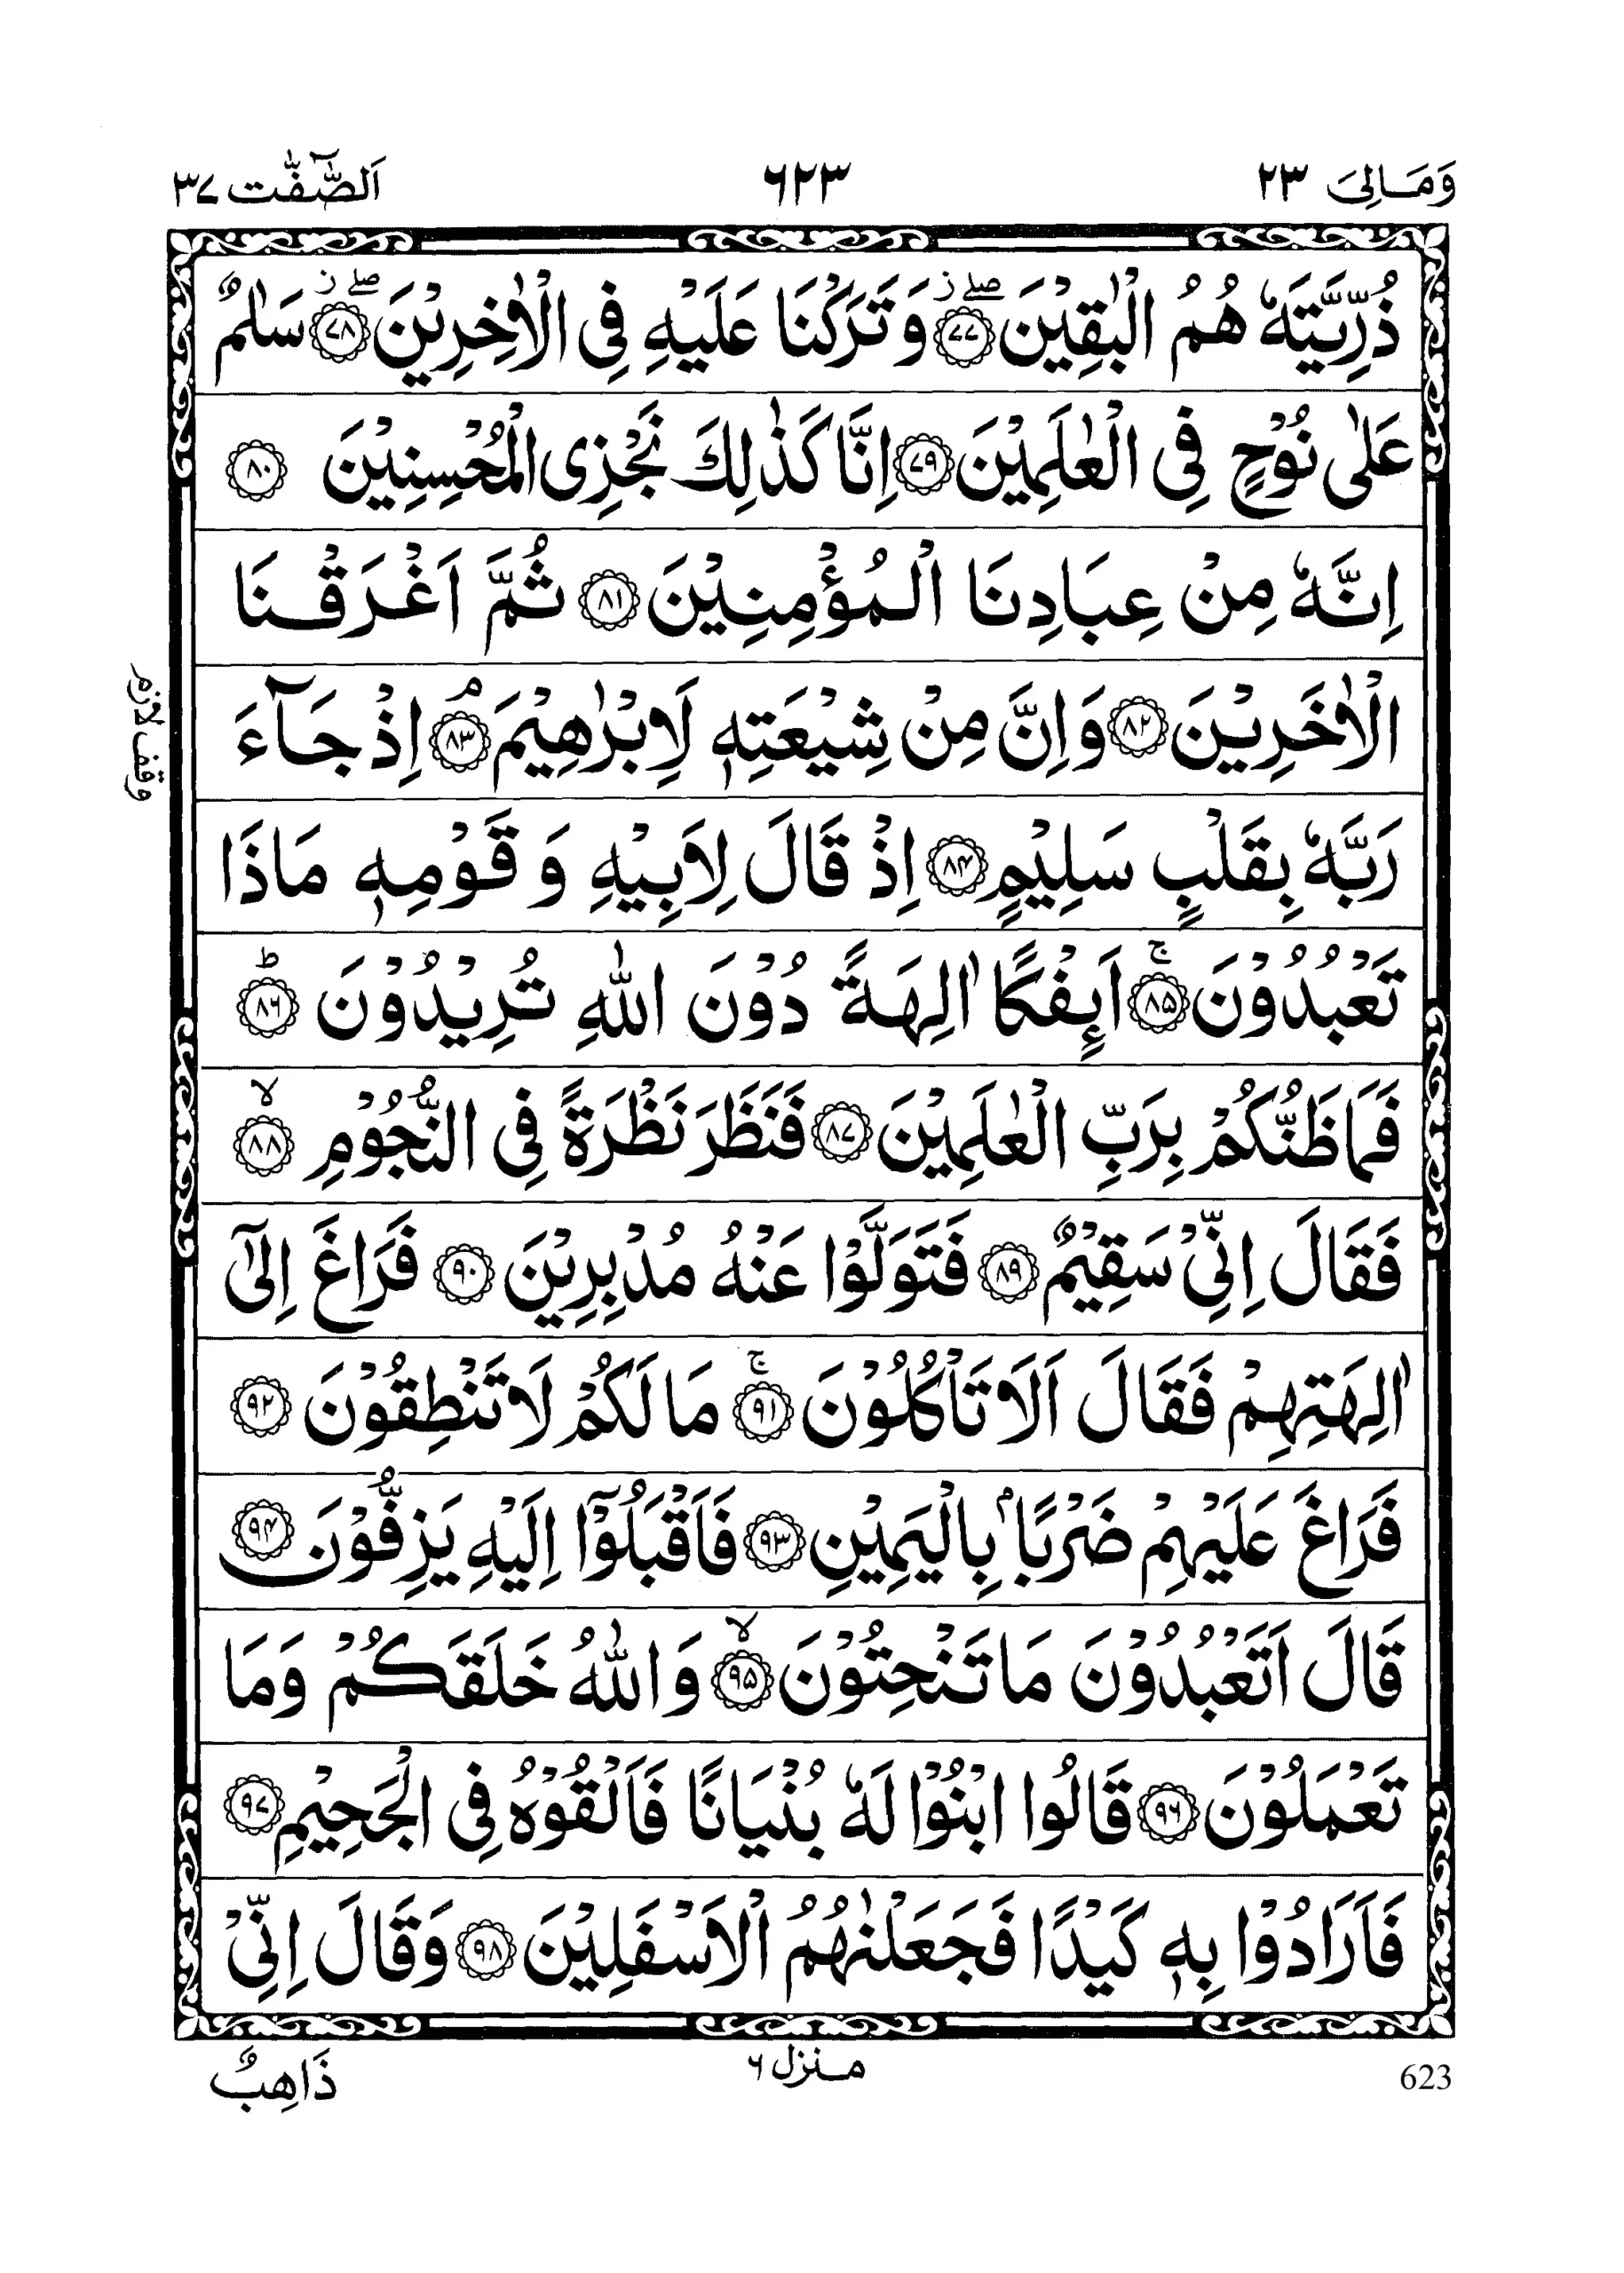 وَمَالِيَ ٢٣
٦٢٣
اَلصّٰٓفّٰت ٣٧
ذُرِّيَّتَهٗ هُمُ الْبٰقِيْنَ ۖز ﴿٧٧﴾ وَ تَرَكْنَا عَلَيْهِ فِى الْاٰخِرِيْنَ ۖز ﴿٧٨﴾ سَلٰمٌ
عَلٰى نُوْحٍ فِى الْعٰلَمِيْنَ ﴿٧٩﴾ اِنَّا كَذٰلِكَ نَجْزِى الْمُحْسِنِيْنَ ﴿٨٠﴾
اِنَّهٗ مِنْ عِبَادِنَا الْمُؤْمِنِيْنَ ﴿٨١﴾ ثُمَّ اَغْرَقْنَا
الْاٰخَرِيْنَ ﴿٨٢﴾ وَاِنَّ مِنْ شِيْعَتِهٖ لَاِبْرٰهِيْمَ ۘ ﴿٨٣﴾ اِذْ جَآءَ
وقف لازم
رَبَّهٗ بِقَلْبٍ سَلِيْمٍ ﴿٨٤﴾ اِذْ قَالَ لِاَبِيْهِ وَ قَوْمِهٖ مَاذَا
تَعْبُدُوْنَ ۚ ﴿٨٥﴾ اَئِفْكًا اٰلِهَةً دُوْنَ اللّٰهِ تُرِيْدُوْنَ ؕ ﴿٨٦﴾
فَمَا ظَنُّكُمْ بِرَبِّ الْعٰلَمِيْنَ ﴿٨٧﴾ فَنَظَرَ نَظْرَةً فِى النُّجُوْمِ ۙ ﴿٨٨﴾
فَقَالَ اِنِّىْ سَقِيْمٌ ﴿٨٩﴾ فَتَوَلَّوْا عَنْهُ مُدْبِرِيْنَ ﴿٩٠﴾ فَرَاغَ اِلٰٓى
اٰلِهَتِهِمْ فَقَالَ اَلَا تَاْكُلُوْنَ ۚ ﴿٩١﴾ مَا لَكُمْ لَا تَنْطِقُوْنَ ﴿٩٢﴾
فَرَاغَ عَلَيْهِمْ ضَرْبًاۢ بِالْيَمِيْنِ ﴿٩٣﴾ فَاَقْبَلُوْٓا اِلَيْهِ يَزِفُّوْنَ ﴿٩٤﴾
قَالَ اَتَعْبُدُوْنَ مَا تَنْحِتُوْنَ ۙ ﴿٩٥﴾ وَاللّٰهُ خَلَقَكُمْ وَمَا
تَعْمَلُوْنَ ﴿٩٦﴾ قَالُوا ابْنُوْا لَهٗ بُنْيَانًا فَاَلْقُوْهُ فِى الْجَحِيْمِ ﴿٩٧﴾
فَاَرَادُوْا بِهٖ كَيْدًا فَجَعَلْنٰهُمُ الْاَسْفَلِيْنَ ﴿٩٨﴾ وَقَالَ اِنِّىْ
623
منزل ٦
ذَاهِبٌ